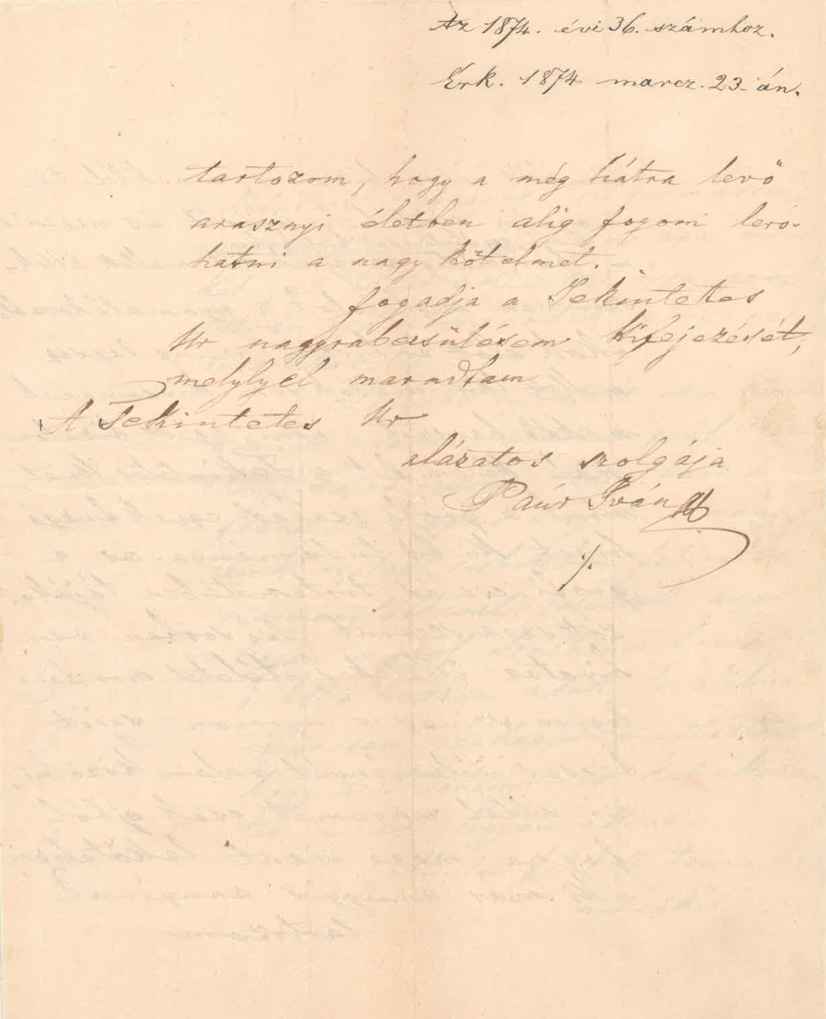 Az 1874. évi 36. számhoz.
Erk. 1874 marcz. 23-án.
tartozom, hogy a még hátra levő
arasznyi életben alig fogom leró-
hatni a nagy kötelmet.
Fogadja a Tekintetes
Ur nagyrabecsülésem kifejezését,
melylyel maradtam
A Tekintetes Ur
alázatos szolgája
Paúr Iván
./.